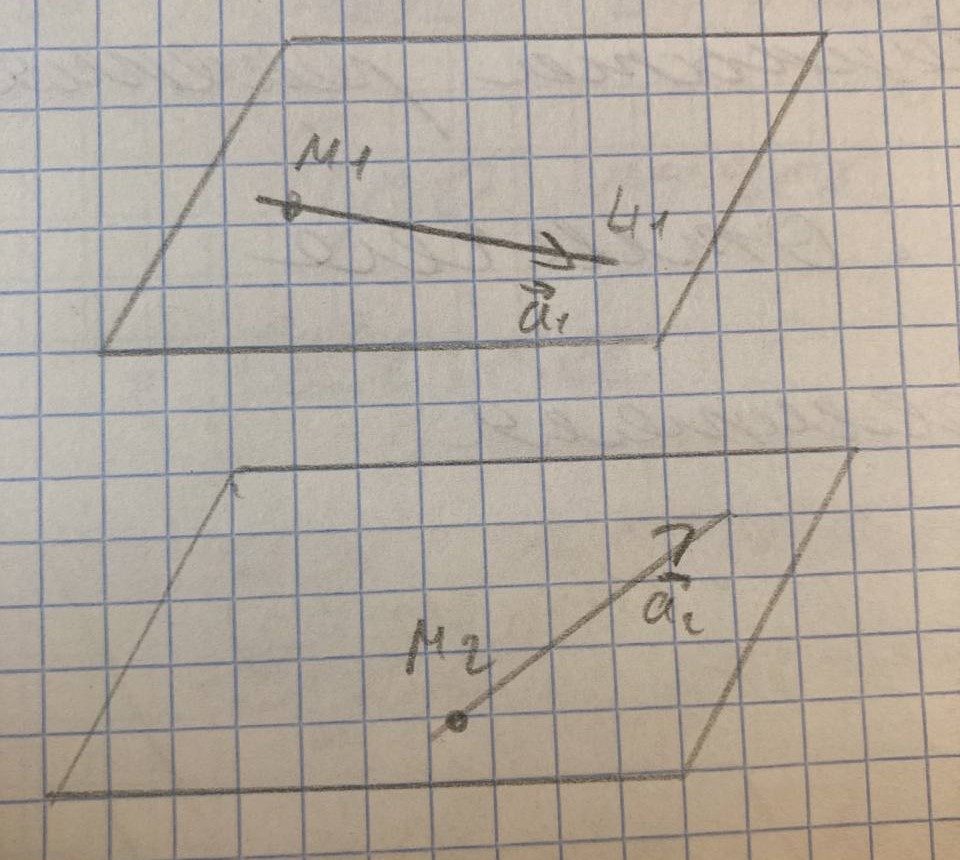 M₁
L₁
a⃗₁
a⃗₂
M₂